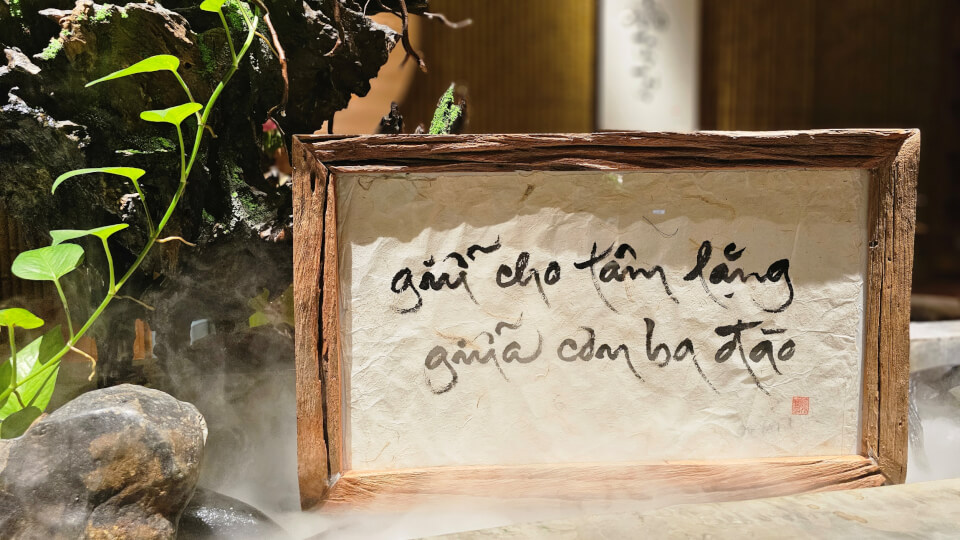 giữ cho tâm lặng
giữa cơn ba đào